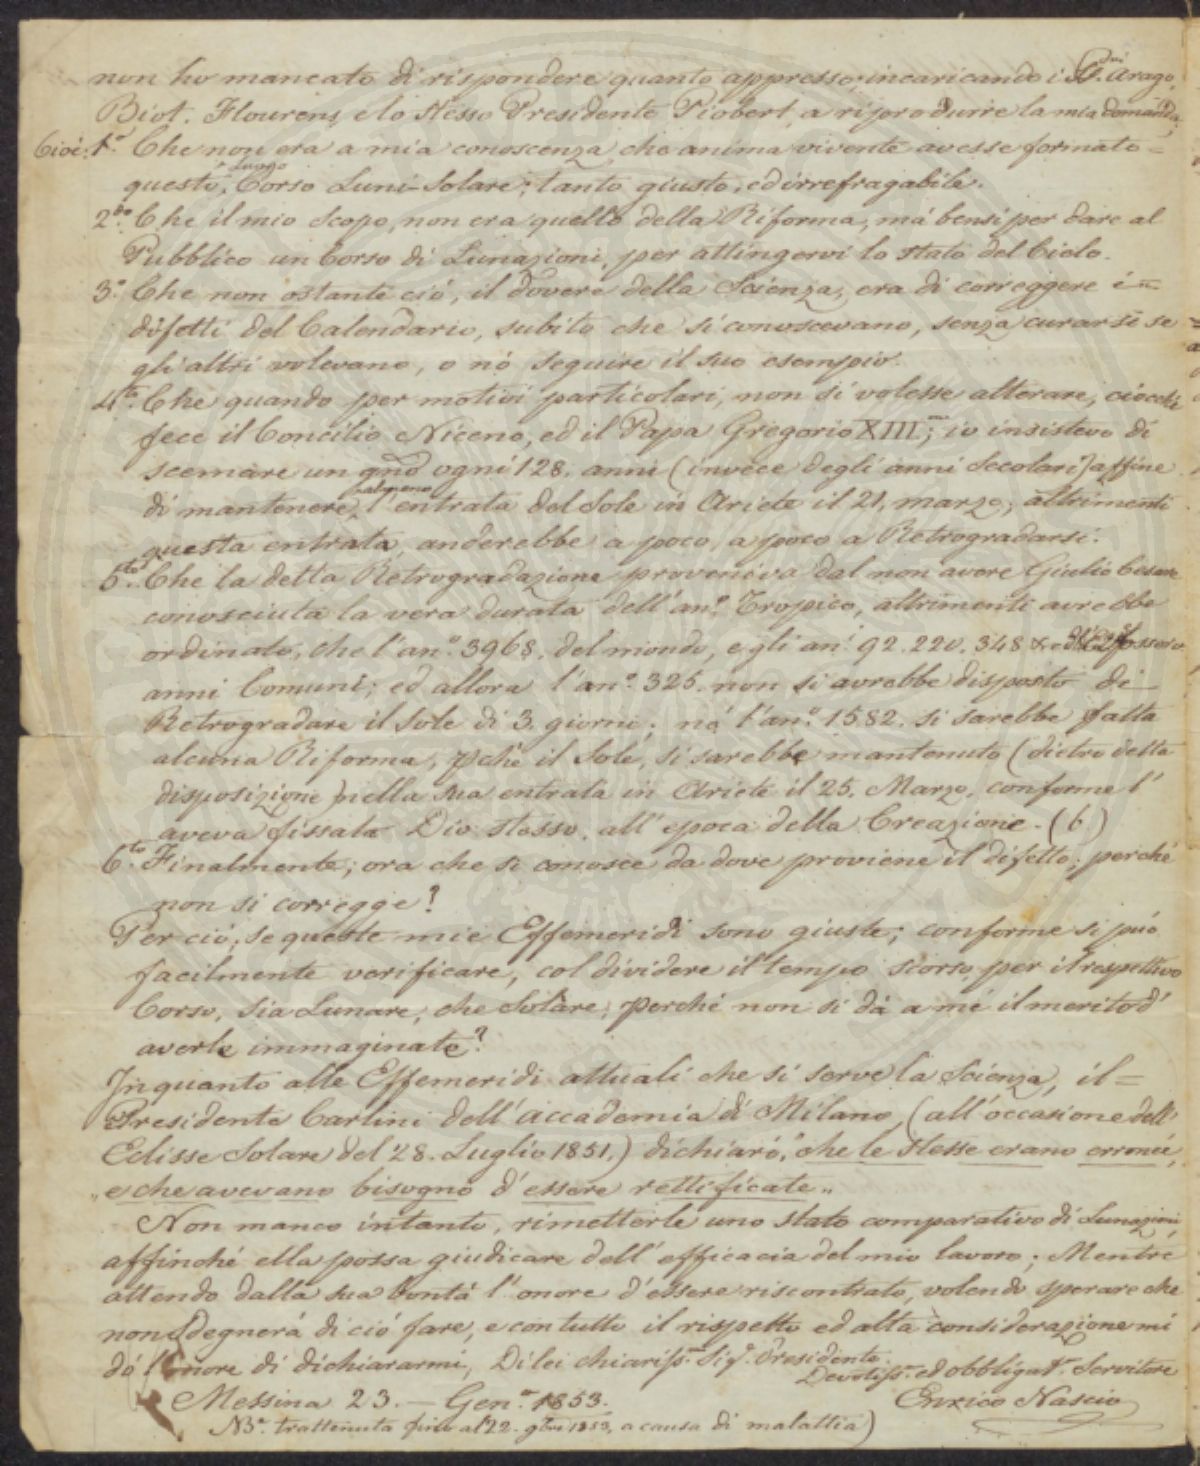 non ho mancato di rispondere quanto appresso; incaricando i S.ri Arago,
Biot. Flourens, e lo stesso Presidente Piobert, a riprodurre la mia domanda;
Cioè: 1.o Che non era a mia conoscenza che anima vivente avesse formato=
questo, lungo Corso Luni-Solare; tanto giusto, ed irrefragabile.
2.do Che il mio scopo, non era quello della Riforma, má bensi per dare al
Pubblico un Corso di Lunazioni, per attingervi lo stato del Cielo.
3.o Che non ostante ció, il dovere della Scienza, era di correggere i=
difetti del Calendario, subito che si conoscevano, senza curarsi se
gli altri volevano, o nó seguire il suo esempio.
4.to Che quando per motivi particolari, non si volesse alterare, ciocché
fece il Concilio Niceno, ed il Papa Gregorio XIII; io insistevo di
scemare un gno ogni 128. anni (invece degli anni Secolari) affine
di mantenere, almeno l'entrata del Sole in Ariete il 21. marzo; altrimenti
questa entrata, anderebbe a poco, a poco a Retrogradarsi.
5.to Che la detta Retrogradazione proveniva dal non avere Giulio Cesare
conosciuta la vera durata dell'an.o Tropico, altrimenti avrebbe
ordinato, che l'an.o 3968. del mondo, e gli an.i 92. 220. 348 & fossero
anni Comuni; ed allora l'an.o 325. non si avrebbe disposto di
Retrogradare il Sole di 3. giorni; né l'an.o 1582. si sarebbe fatta
alcuna Riforma, pché il Sole, si sarebbe mantenuto (dietro detta
disposizione) nella sua entrata in Ariete il 25. Marzo. conforme l'
aveva fissata Dio stesso, all'epoca della Creazione. (b)
6.to Finalmente; ora che si conosce da dove proviene il difetto; perché
non si corregge?
Per ció, se queste mie Effemeridi sono giuste; conforme si può
facilmente verificare, col dividere il tempo scorso, per il respettivo
Corso, sia Lunare, che Solare; perché non si dà a me il merito d'
averle immaginate?
In quanto alle Effemeridi attuali che si serve la Scienza, il=
Presidente Carlini dell'accademia di Milano (all'occasione dell'
Eclisse Solare del 28. Luglio 1851.) dichiaró, "che le stesse erano erronée,
"e che avevano bisogno d'essere rettificate"
Non manco intanto, rimetterle uno stato comparativo di Lunazioni
affinché ella possa giudicare dell'efficacia del mio lavoro; Mentre
attendo dalla sua bontá l'onore d'essere riscontrato, volendo sperare che
non sdegnerá di ció fare, e con tutto il rispetto ed alta considerazione mi
dó l'onore di dichiararmi, Di lei chiariss.o Sig.r Presidente
Devotiss.o ed obbligat.o Servitore
Messina 23. — Gen.o 1853. Enrico Nascio
NB.a trattenuta fino al 22. 9bre 1853, a causa di malattia)